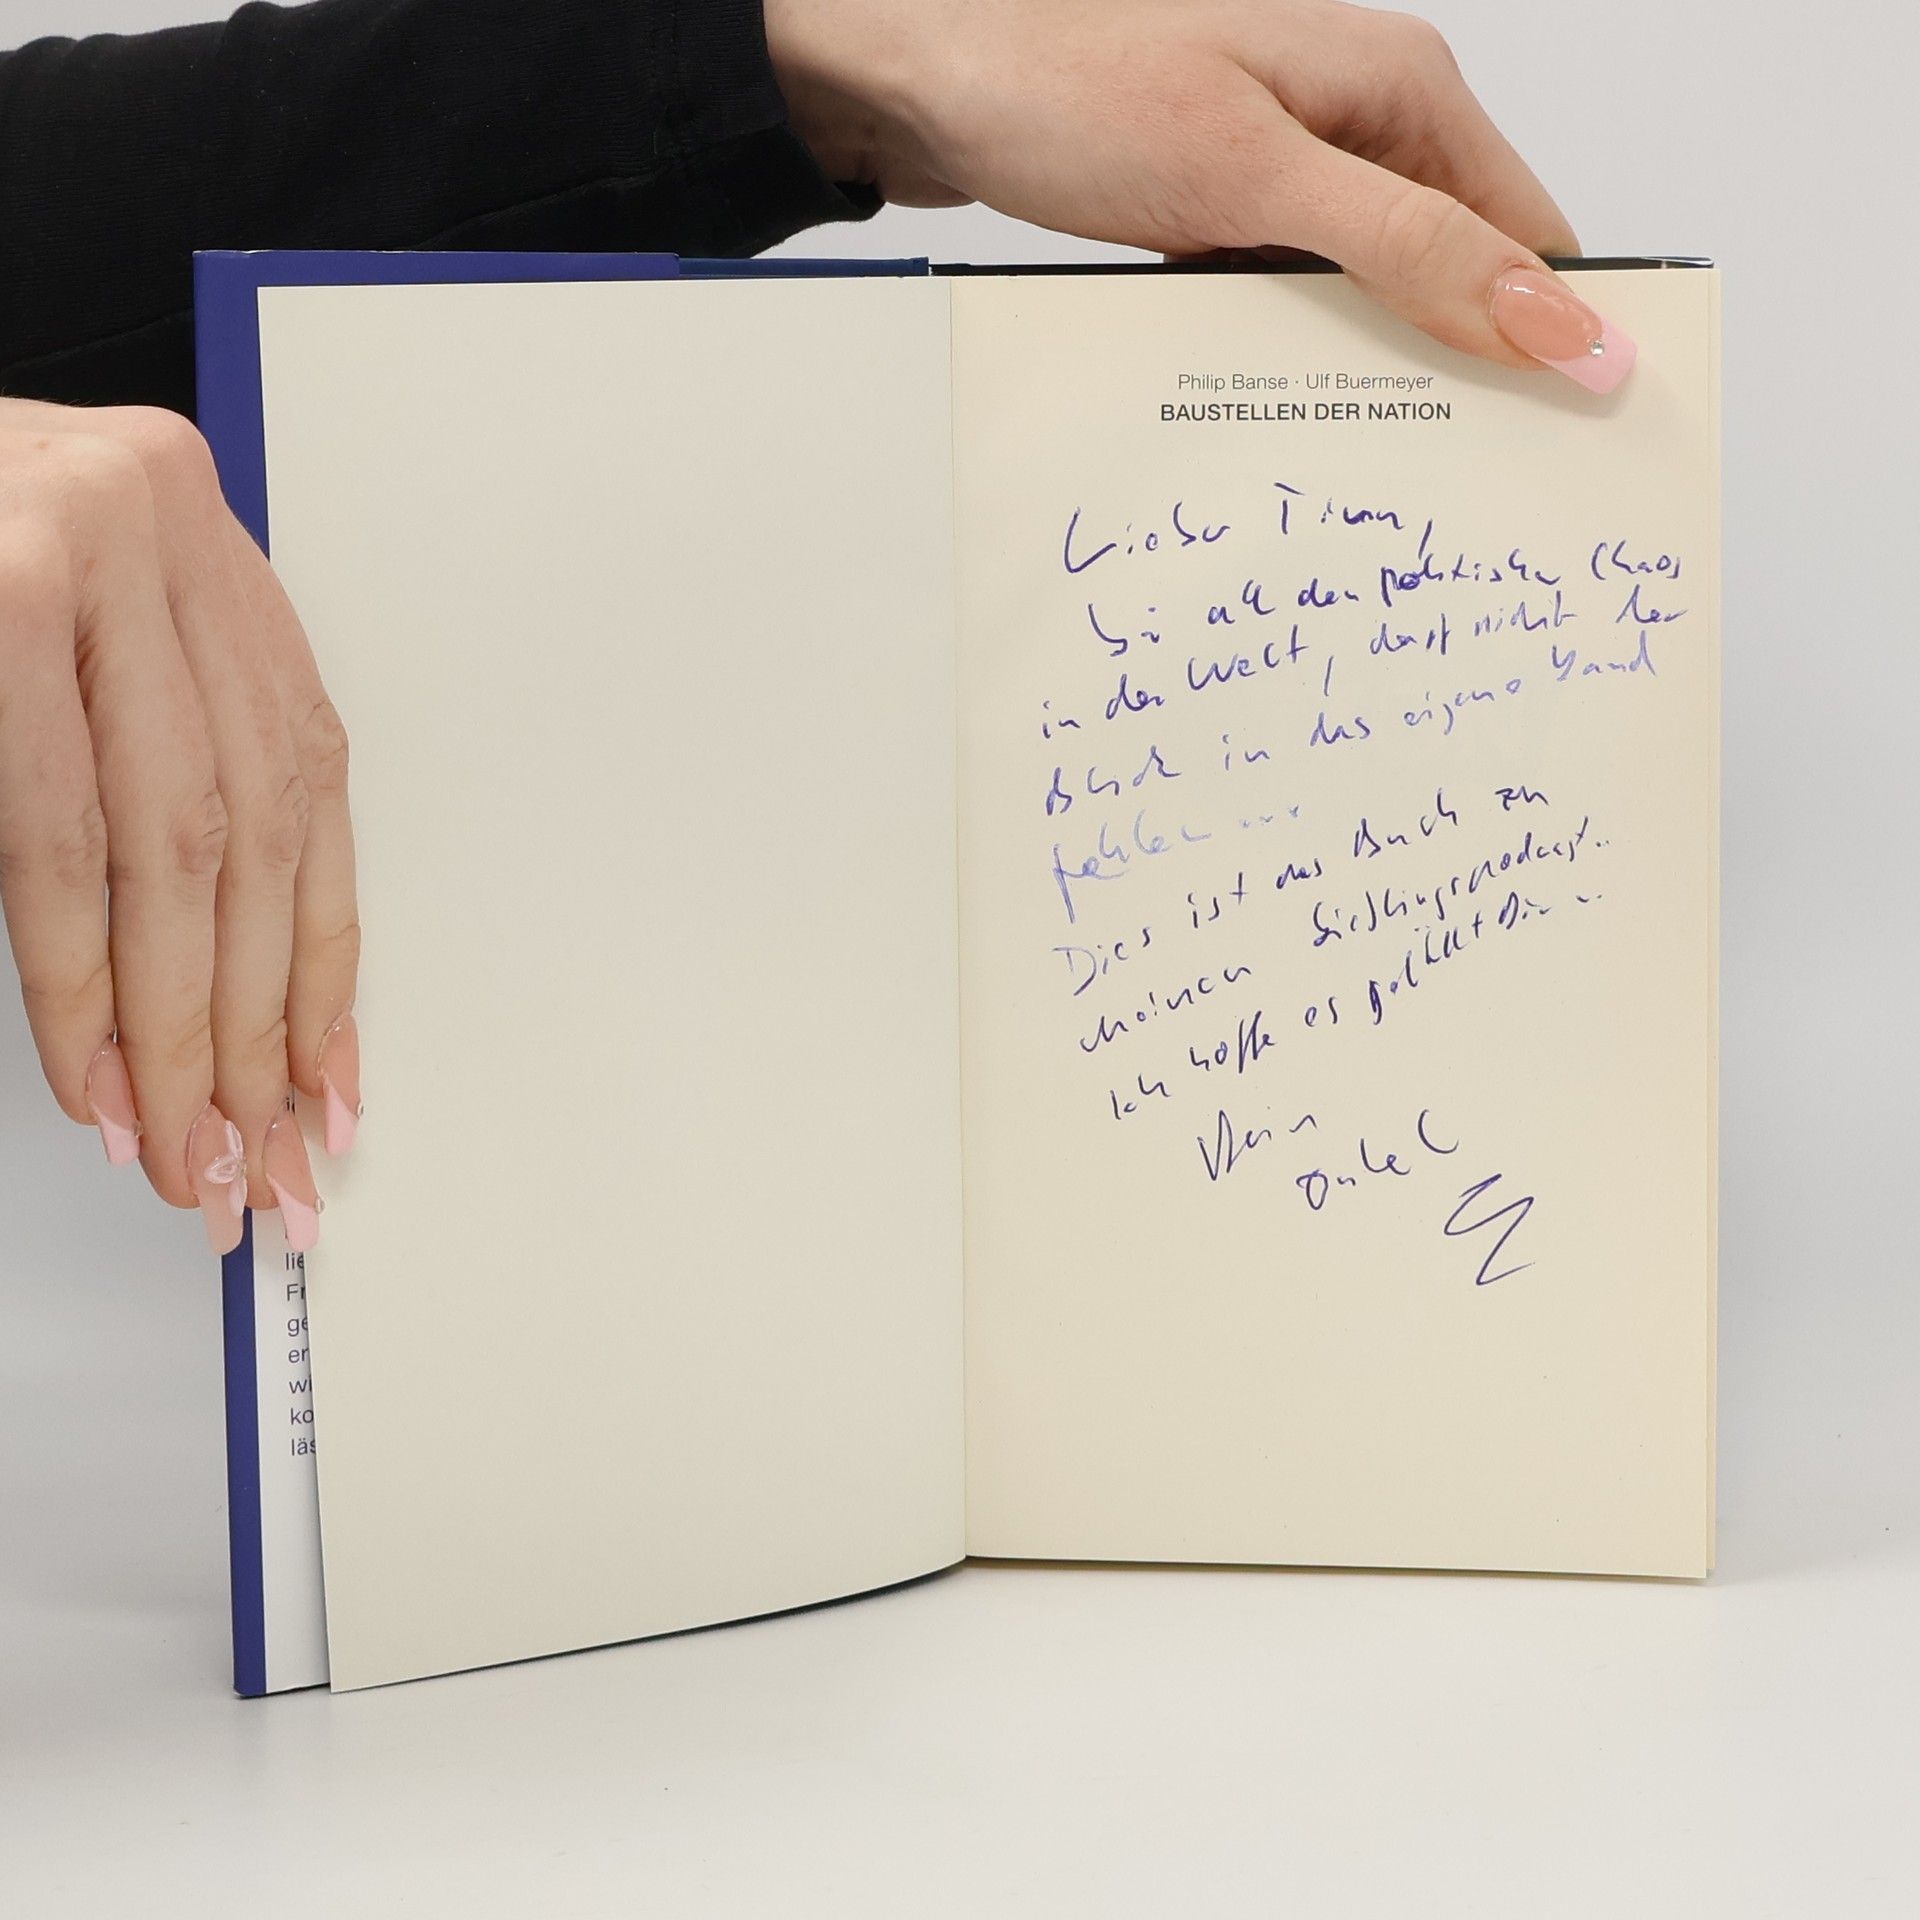 Philip Banse · Ulf Buermeyer
BAUSTELLEN DER NATION
Lieber Timm,
bei all dem politischen Chaos
in der Welt, darf nicht der
Blick in das eigene Land
fehlen ...
Dies ist das Buch zu
meinem Lieblingspodcast..
Ich hoffe es gefällt Dir ..
Dein
Onkel
lie
Fr
ge
er
wi
ko
läs